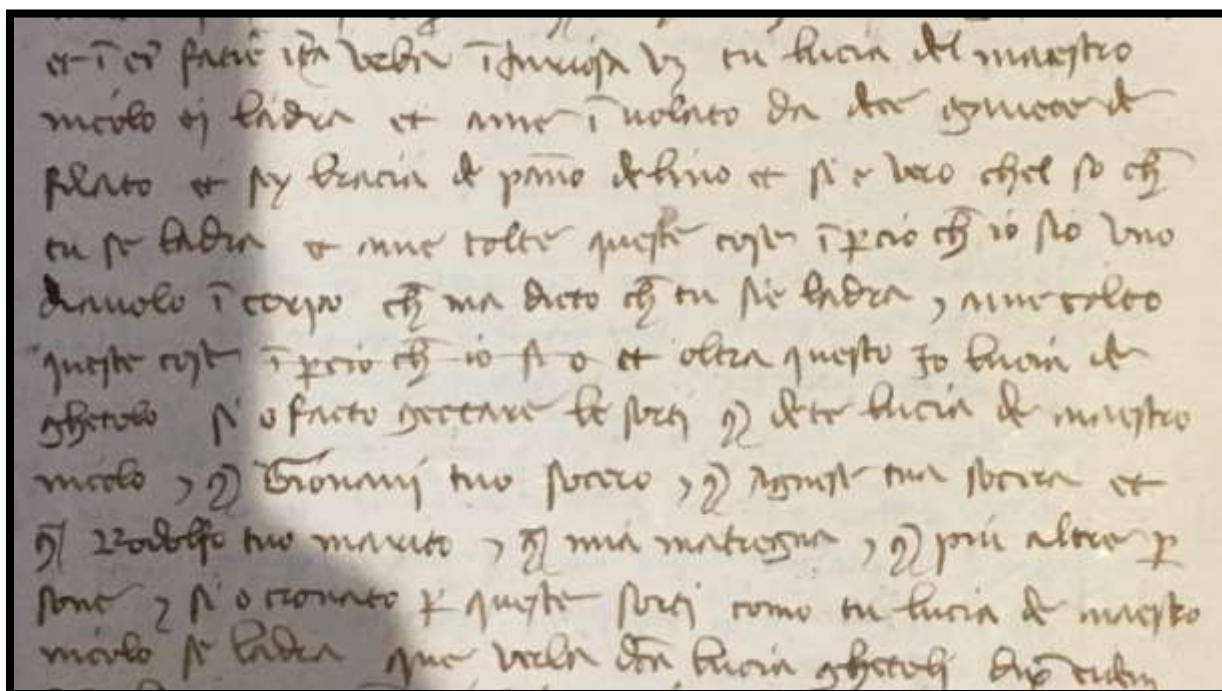 et ī eī faciē ītā verba īniuriosa vz tu lucia del maestro
nicolo si ladra et ame ī uolato da dece de
filato et sey bracia de pāno delino et si e vero chel so ch̄
tu se ladra et ame tolte queste cose ī ꝑcio ch̄ io sio vno
diauolo ī corpo ch̄ ma dicto ch̄ tu sie ladra , ame tolto
queste cose ī ꝑcio ch̄ io si o et oltra questo Io lucia de
ghetolo si o facto gectare le sorti de te lucia de maestro
nicolo , Giouanj tuo socero , Agnese tua socera et
Rodolfo tuo marito , mia matregna , piu altre ꝑ
sone , si o trouato ꝑ queste sorti como tu lucia de maestro
nicolo se ladra que verba dc̄a lucia ghetoli dix̄ eidem